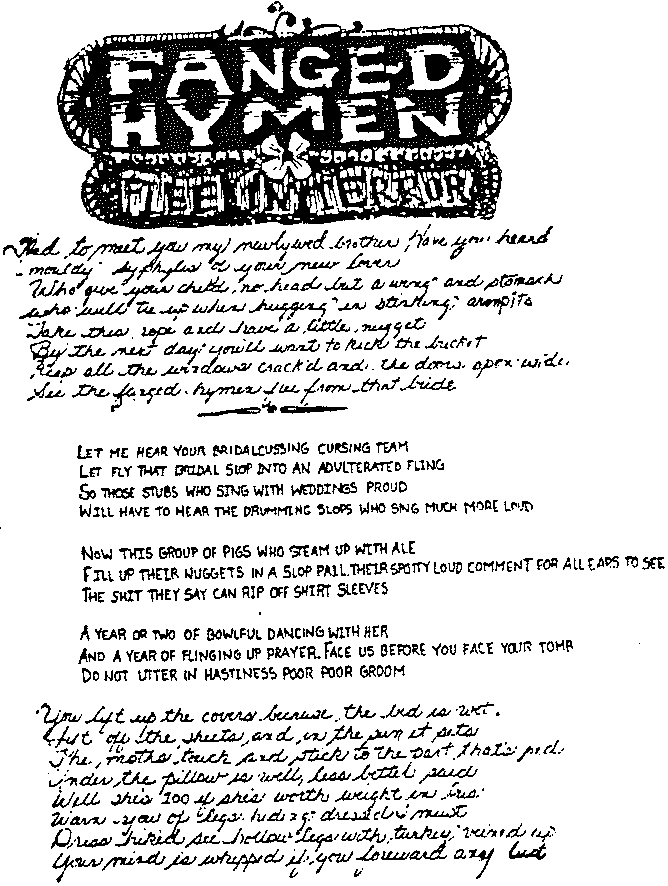 FANGED
HYMEN
Had to meet you my newlywed brother, Have you heard
mouldy syphylis of your new lover
Who give your child, no head but a wing and stomach
who will tie up when hugging in stinking armpits
Take this rope and have a little nugget
By the next day you'll want to kick the bucket
Keep all the windows crack'd and the doors open wide.
See the fanged hymen from that bride
LET ME HEAR YOUR BRIDALCUSSING CURSING TEAM
LET FLY THAT BRIDAL SLOP INTO AN ADULTERATED FLING
SO THOSE STUBS WHO SING WITH WEDDINGS PROUD
WILL HAVE TO HEAR THE DRUMMING SLOPS WHO SING MUCH MORE LOUD
NOW THIS GROUP OF PIGS WHO STEAM UP WITH ALE
FILL UP THEIR NUGGETS IN A SLOP PAIL. THEIR SPOTTY LOUD COMMENT FOR ALL EARS TO SEE
THE SHIT THEY SAY CAN RIP OFF SHIRT SLEEVES
A YEAR OR TWO OF BOWLFUL DANCING WITH HER
AND A YEAR OF FLINGING UP PRAYER. FACE US BEFORE YOU FACE YOUR TOMB
DO NOT UTTER IN HASTINESS POOR POOR GROOM
You lift up the covers because the bed is wet.
Lift off the sheets, and in the sun it sets
The moths touch and stick to the part that's
Under the pillow is well, less better said
Well she's 200 if she's worth weight in
Warn you of legs hiding dress must
Dress hiked see hollow legs with turkey veined up
Your mind is whipped if you foreward any lust